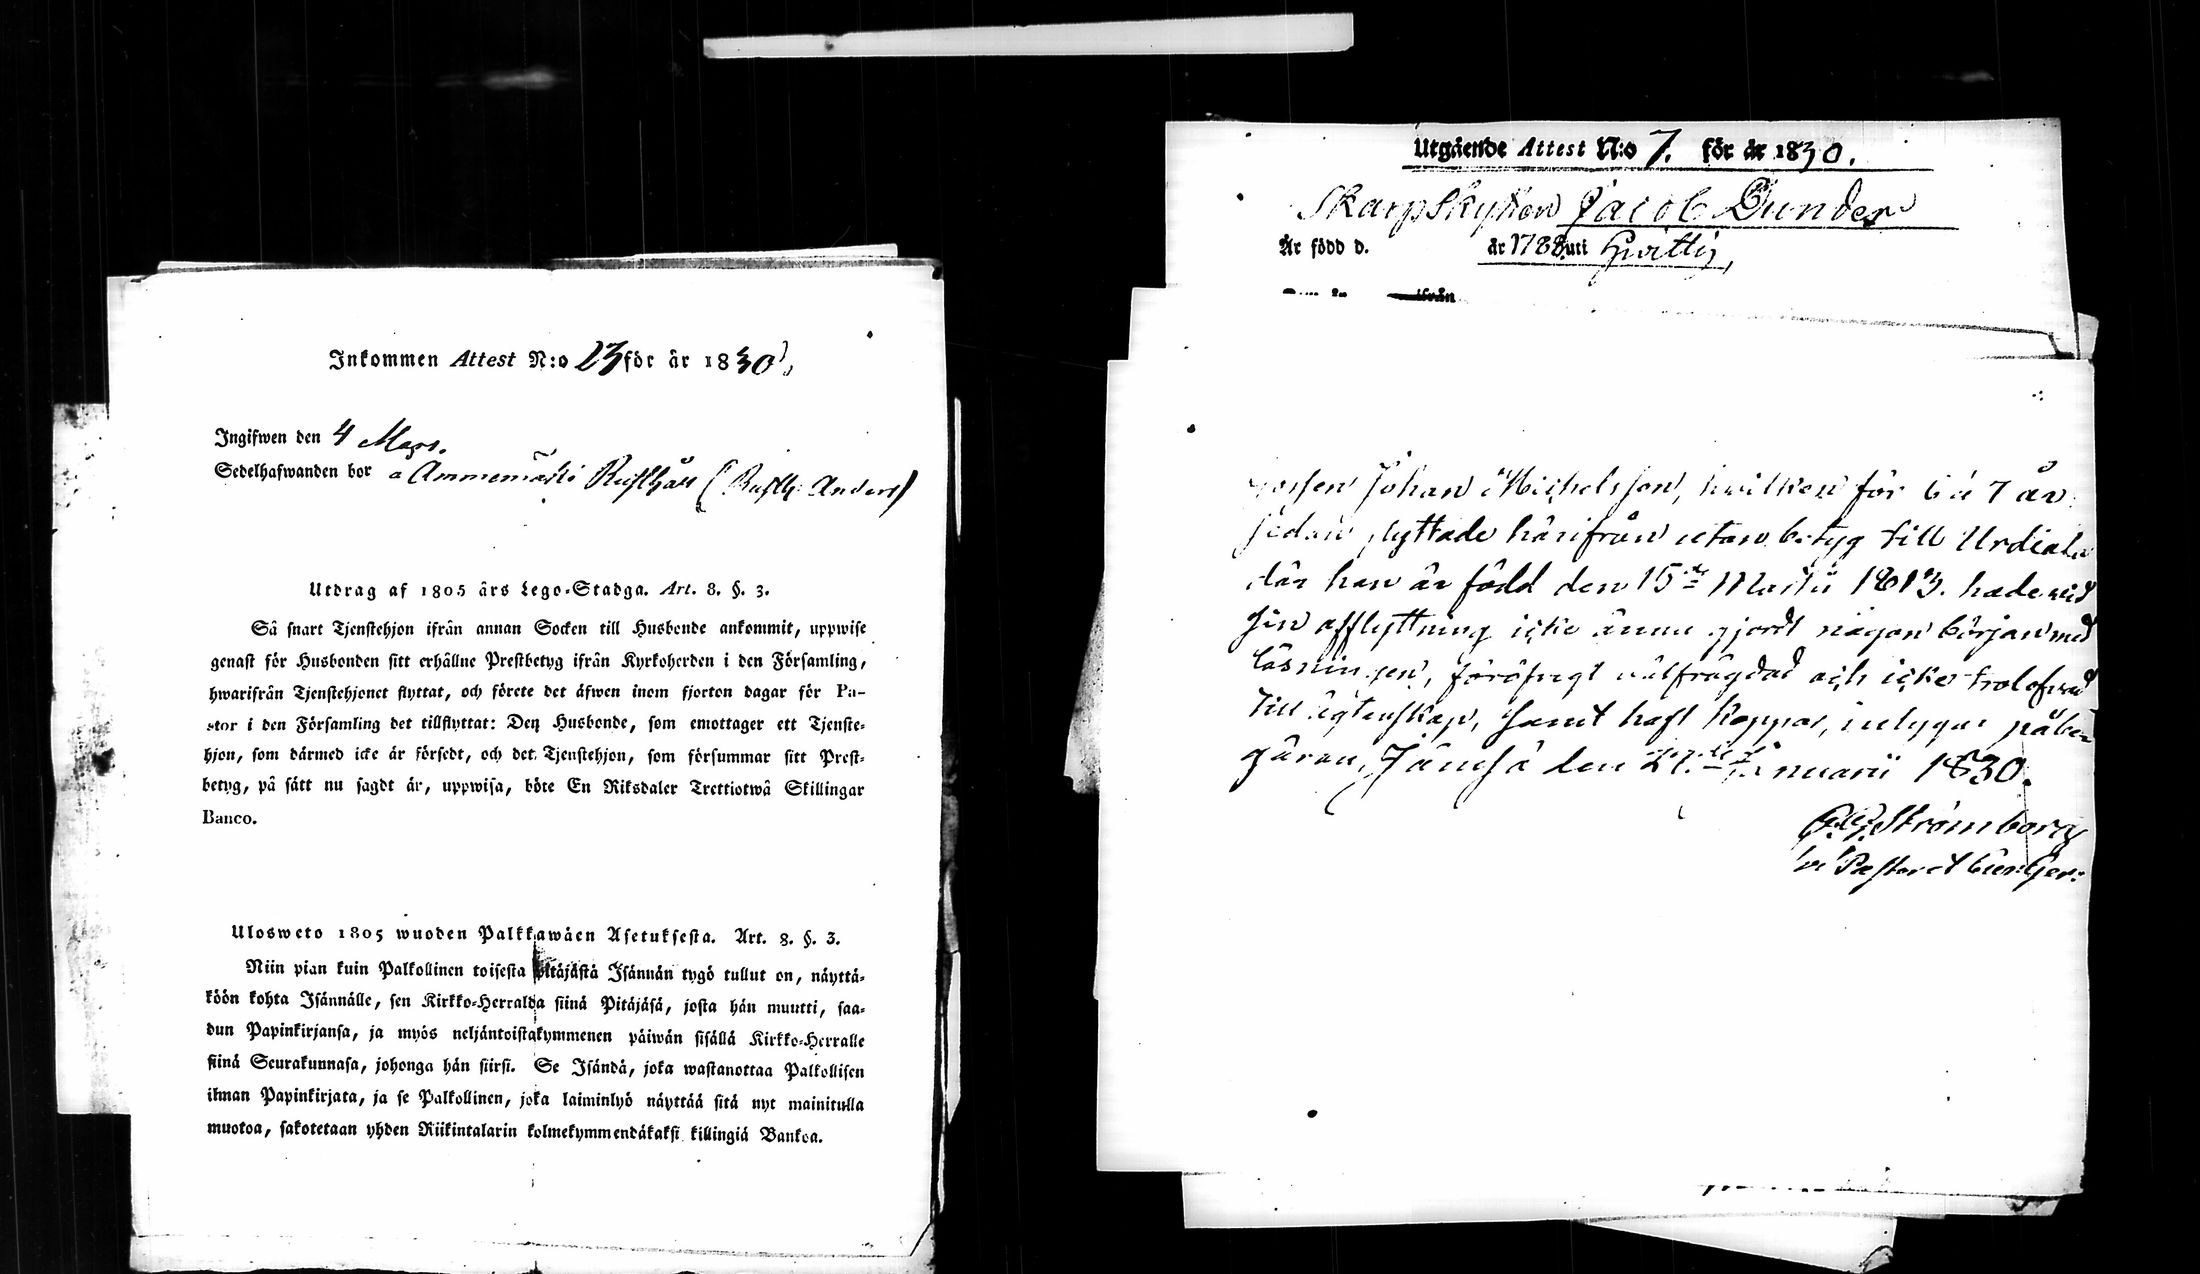 Inkommen Attest N:o 23 för år 1830,
Ingifwen den 4 Mars.
Sedelhafwanden bor a Ammemäki Rusthåll (Rusth: Anders)
Utdrag af 1805 års Lego-Stadga. Art. 8. §. 3.
Så snart Tjenstehjon ifrån annan Socken till Husbonde ankommit, uppwise
genast för Husbonden sitt erhållne Prestbetyg ifrån Kyrkoherden i den Församling,
hwarifrån Tjenstehjonet flyttat, och förete det äfwen inom fjorton dagar för Pa-
stor i den Församling det tillflyttat: Den Husbonde, som emottager ett Tjenste-
hjon, som därmed icke är försedt, och det Tjenstehjon, som försummar sitt Prest-
betyg, på sätt nu sagdt är, uppwisa, böte En Riksdaler Trettiotwå Skillingar
Banco.
Ulosweto 1805 wuoden Palkkawäen Asetuksesta. Art. 8. §. 3.
Niin pian kuin Palkollinen toisesta Pitäjästä Isännän tygö tullut on, näyttä-
köön kohta Isännälle, sen Kirkko-Herralda siinä Pitäjäsä, josta hän muutti, saa-
dun Papinkirjansa, ja myös neljäntoistakymmenen päiwän sisällä Kirkko-Herralle
siinä Seurakunnasa, johonga hän siirsi. Se Isändä, joka wastanottaa Palkollisen
ilman Papinkirjata, ja se Palkollinen, joka laiminlyö näyttää sitä nyt mainitulla
muotoa, sakotetaan yhden Riikintalarin kolmekymmendäkaksi killingiä Bankoa.
Utgående Attest N:o 7. för år 1830.
Skarpskytten Jacob Dunder
År född d. år 1788 uti Hvittis,
ifrån
Johan Michelsson, hvilken för 6 á 7 år
sedan flyttade härifrån utan betyg till Urdiala
där han är född den 15de Martii 1813. hade vid
sin afflyttning icke ännu gjordt någon början med
läsningen, föröfrigt välfrägdad och icke trolofvad
till ägtenskap, samt haft koppor, intygar på be-
gäran, Jämsä den 27de Januarii 1830.
Strömborg
v: Pastor et